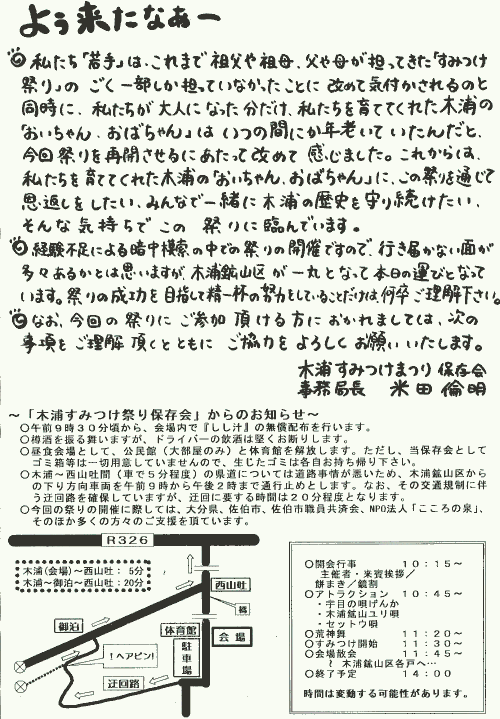 よぅ来たなぁー
私たち「若手」は、これまで祖父や祖母、父や母が担ってきた「すみつけ
祭り」の ごく一部しか担っていなかったことに 改めて気付かされるのと
同時に、私たちが大人になった分だけ、私たちを育ててくれた木浦の
「おいちゃん、おばちゃん」は いつの間にか年老いていたんだと、
今回祭りを再開させるにあたって改めて 感じました。これからは、
私たちを育ててくれた木浦の「おいちゃん、おばちゃん」に、この祭りを通じて
恩返しをしたい、みんなで一緒に木浦の歴史を守り続けたい、
そんな気持ちでこの 祭りに臨んでいます。
経験不足による暗中模索の中での祭りの開催ですので、行き届かない面が
多々あるかとは思いますが、木浦鉱山区が一丸となって本日の運びとなって
います。祭りの成功を目指して精一杯の努力をしていることだけは何卒ご理解下さい。
なお、今回の祭りに ご参加 頂ける方に おかれましては、次の
事項を ご理解 頂くとともに ご協力を よろしくお願いいたします。
木浦すみつけまつり保存会
事務局長 米田倫明
～「木浦すみつけ祭り保存会」からのお知らせ～
○午前9時30分頃から、会場内で『しし汁』の無償配布を行います。
○樽酒を振る舞いますが、ドライバーの飲酒は堅くお断りします。
○昼食会場として、公民館（大部屋のみ）と体育館を解放します。ただし、当保存会として
ゴミ箱等は一切用意していませんので、生じたゴミは各自お持ち帰り下さい。
○木浦～西山吐間（車で5分程度）の県道については道路事情が悪いため、木浦鉱山区から
の下り方向車両を午前9時から午後2時まで通行止めとします。なお、その交通規制に伴
う迂回路を確保していますが、迂回に要する時間は20分程度となります。
○今回の祭りの開催に際しては、大分県、佐伯市、佐伯市職員共済会、NPO法人「こころの泉」、
そのほか多くの方々のご支援を頂ています。
R326
木浦（会場）～西山吐：5分
木浦～御泊～西山吐：20分
西山吐
橋
御泊
体育館
会場
！ヘアピン！
駐車場
迂回路
○開会行事 10：15～
主催者・来賓挨拶／
餅まき／鏡割
○アトラクション 10：45～
・宇目の唄げんか
・木浦鉱山ユリ唄
・セットウ唄
○荒神舞 11：20～
○すみつけ開始 11：30～
○会場散会 11：45～
～ 木浦鉱山区各戸へ…
○終了予定 14：00
時間は変動する可能性があります。